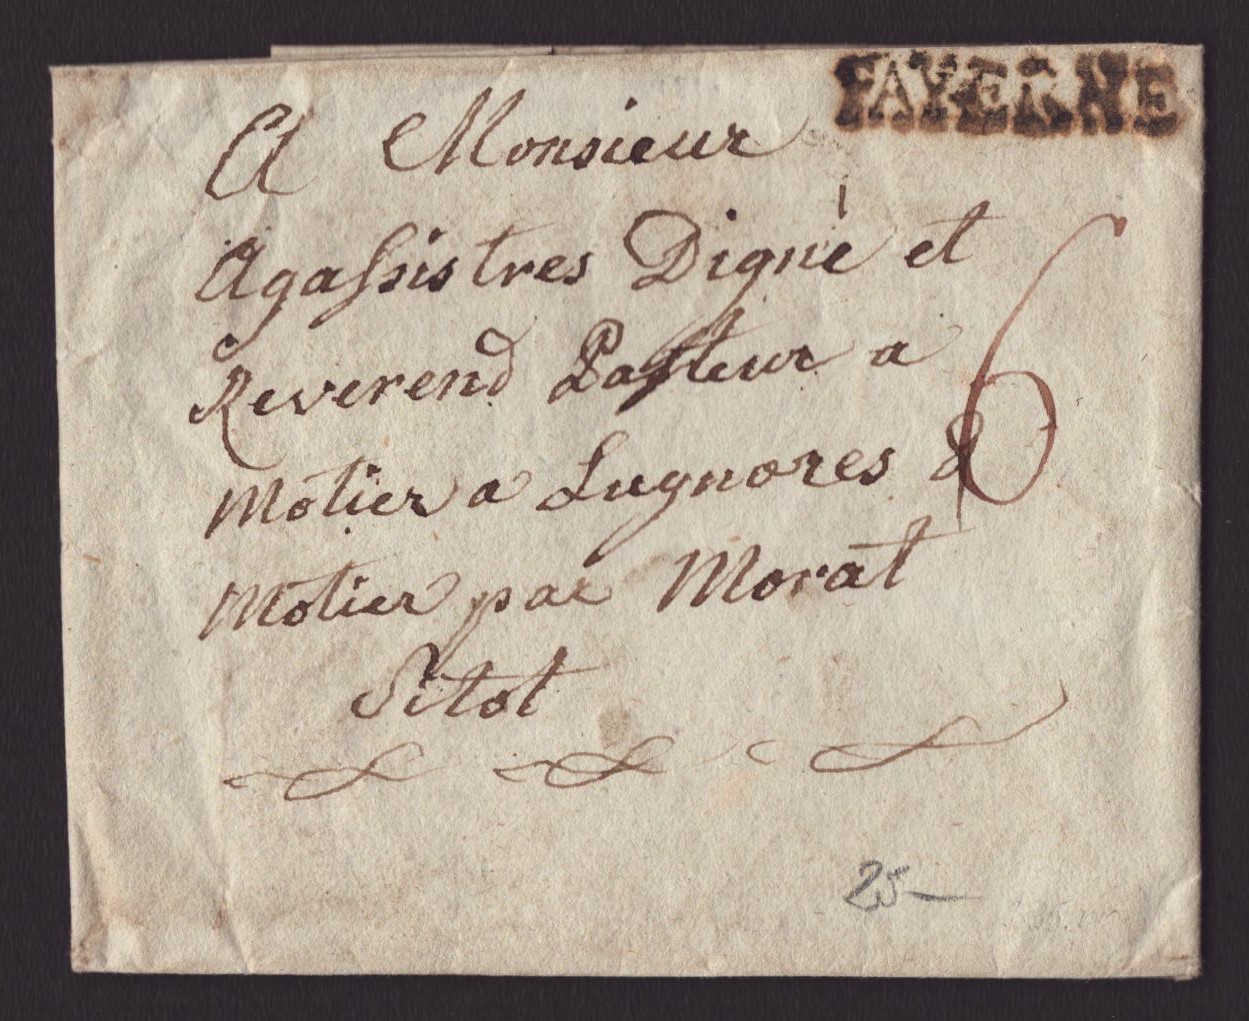 PAYERNE
A Monsieur
Agassis tres Digne et
Reverend Pasteur a
Motier a Lugnores &
Motier par Morat
Sitot
6
25-